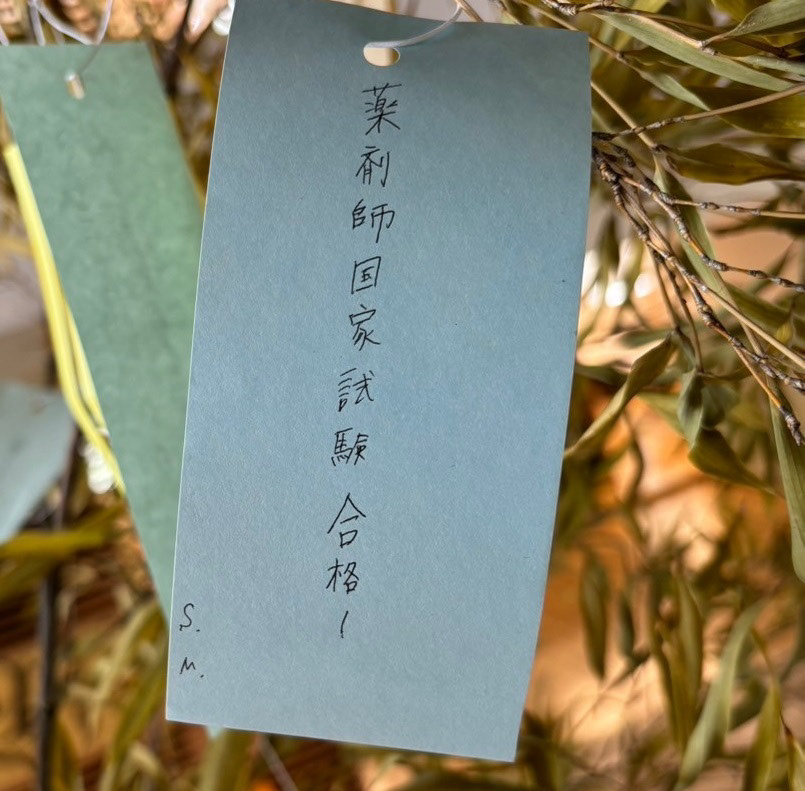 薬剤師国家試験 合格!
S.M.